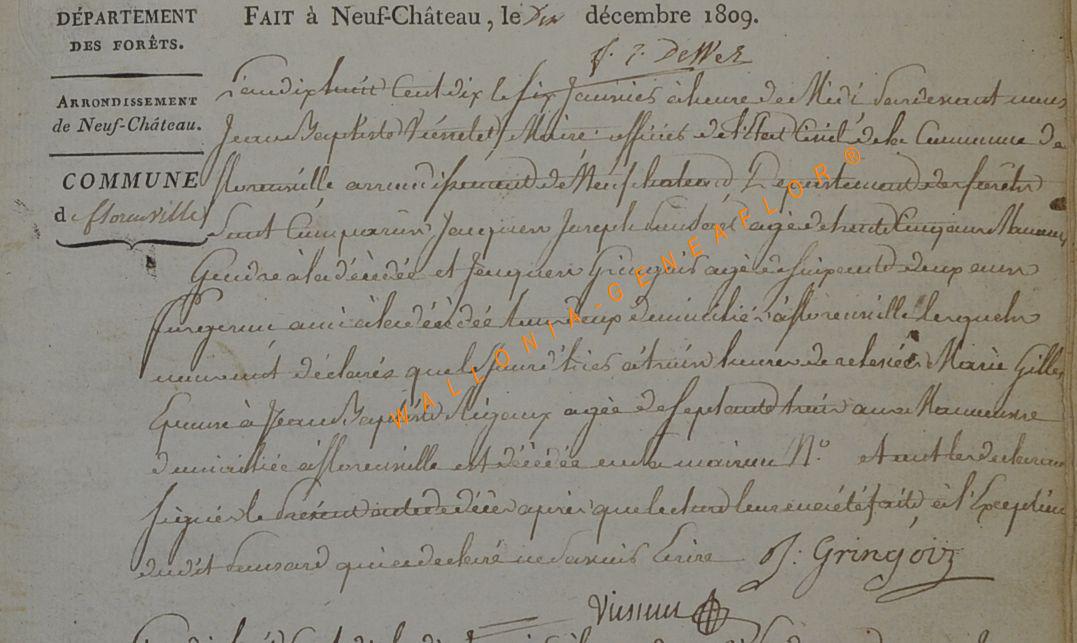 DÉPARTEMENT
DES FORÊTS.
ARRONDISSEMENT
de Neuf-Château.
COMMUNE
de florenville
FAIT à Neuf-Château, le Dix décembre 1809.
L'an dix huit Cent dix le six Janvier à heure de Midi Pardevant nous
Jean Baptiste Maire officier de l'Etat Civil de la Commune de
florenville arrondissement de Neufchateau Departement des forêts
Sont Comparus Jacques Joseph agé de trente Cinq ans
Gendre à la décédée et Jacques Gringois agé de soixante deux ans
ami à la décédée tous deux domiciliés à florenville lesquels
nous ont déclarés que le jour d'hier à trois heures de relevée Marie Gilles
Epouse à Jean Baptiste agée de septante trois ans
domiciliée à florenville est décédée en sa maison N.° et ont les déclarans
signés le présent acte de décès après que lecture leur en a été faite, à l'Exception
dudit qui a déclaré ne savoir Ecrire J: Gringoiz
WALLONIA-GENEAFLOR ®